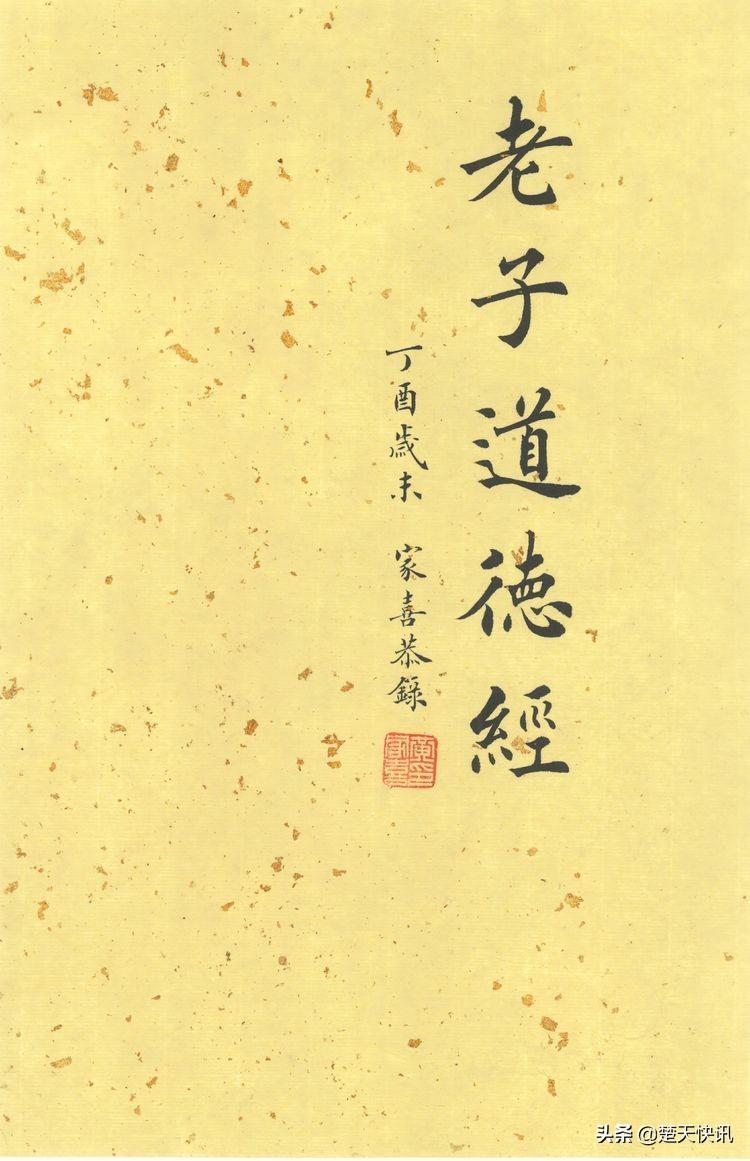 老子道德經
丁酉歲末 家喜恭錄
黃家喜印
头条 @楚天快讯